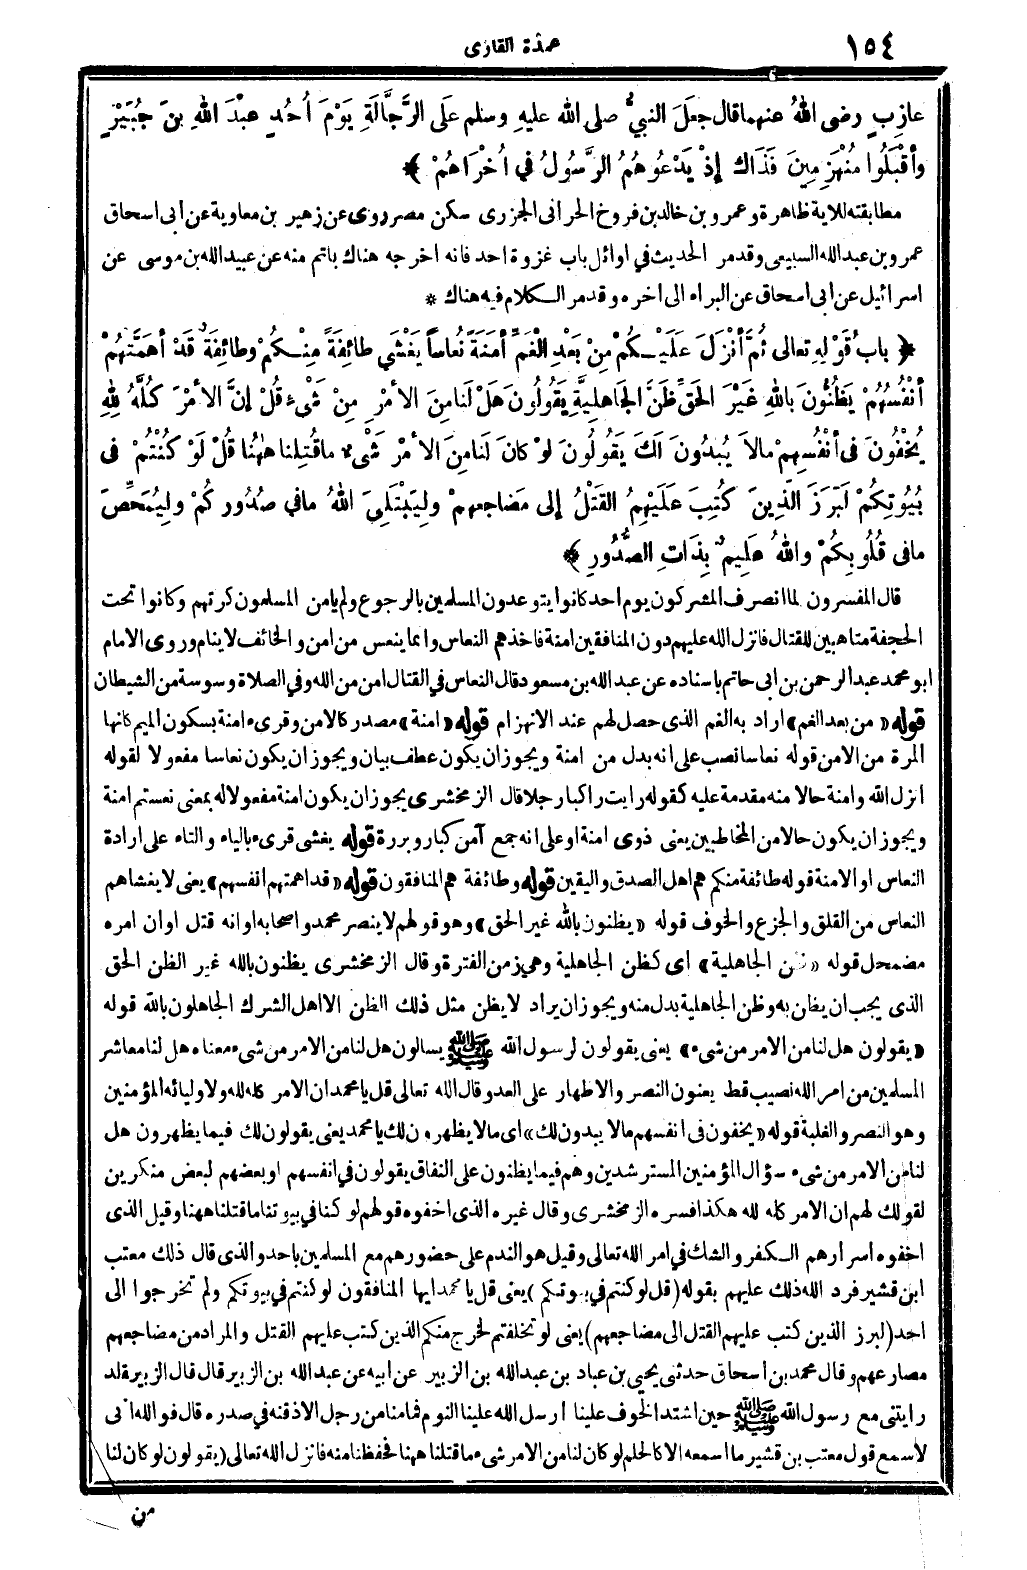 ١٥٤
عمدة القارى
عازِبٍ رضى اللهُ عنهما قال جعَلَ النبيُّ صلى الله عليهِ وسلم علَى الرَّجَّالَةِ يَوْمَ أُحُدٍ عبْدَ اللهِ بنَ جُبَيْرٍ
وأقْبَلُوا مُنْهَزِمِينَ فَذَاكَ إذْ يَدْعُوهُمُ الرَّسُولُ في أُخْرَاهُمْ *
مطابقته للاية ظاهرة وعمرو بن خالد بن فروخ الحرانى الجزرى سكن مصر روى عن زهير بن معاوية عن ابى اسحاق
عمرو بن عبد الله السبيعى وقد مر الحديث في اوائل باب غزوة احد فانه اخرجه هناك باتم منه عن عبيد الله بن موسى عن
اسرائيل عن ابى اسحاق عن البراء الى اخره وقد مر الكلام فيه هناك *
﴿ بابُ قَوْلِهِ تعالى ثُمَّ أنْزَلَ عَلَيْكُمْ مِنْ بَعْدِ الغَمِّ أمَنَةً نُعاساً يَغْشَي طائِفَةً مِنْكُمْ وطائِفَةٌ قَدْ أهَمَّتْهُمْ
أنْفُسُهُمْ يَظُنُّونَ باللهِ غَيْرَ الحَقِّ ظَنَّ الجَاهِلِيَّةِ يَقُولُونَ هَلْ لَنا مِنَ الأمْرِ مِنْ شَىْءٍ قُلْ إنَّ الأمْرَ كُلَّهُ لِلهِ
يُخْفُونَ فى أنْفُسِهِمْ مالاَ يُبْدُونَ لَكَ يَقُولُونَ لوْ كانَ لَنا مِنَ الأمْرِ شَىْءٌ ماقُتِلنا هٰهُنا قُلْ لَوْ كُنْتُمْ فى
بُيُوتِكُمْ لَبَرَزَ الَّذِينَ كُتِبَ عَلَيْهِمُ القَتْلُ إلى مَضاجِعِهِمْ ولِيَبْتَلِىَ اللهُ مافي صُدُورِكُمْ ولِيُمَحِّصَ
مافى قُلُوبِكُمْ واللهُ عَلِيمٌ بِذَاتِ الصُّدُورِ ﴾
قال المفسرون لما انصرف المشركون يوم احد كانوا يتوعدون المسلمين بالرجوع ولم يامن المسلمون كرتهم وكانوا تحت
الحجفة متاهبين للقتال فانزل الله عليهم دون المنافقين امنة فاخذهم النعاس وانما ينعس من امن والخائف لا ينام وروى الامام
ابو محمد عبد الرحمن بن ابى حاتم باسناده عن عبد الله بن مسعود قال النعاس في القتال امن من الله وفي الصلاة وسوسة من الشيطان
قوله «من بعد الغم» اراد به الغم الذى حصل لهم عند الانهزام قوله «امنة» مصدر كالامن وقرىء امنة بسكون الميم كانها
المرة من الامن قوله نعاسا نصب على انه بدل من امنة ويجوز ان يكون عطف بيان ويجوز ان يكون نعاسا مفعولا لقوله
انزل الله وامنة حالا منه مقدمة عليه كقوله رايت راكبا رجلا قال الزمخشرى يجوز ان يكون امنة مفعولا له بمعنى نعستم امنة
ويجوز ان يكون حالا من المخاطبين يعنى ذوى امنة او على انه جمع آمن كبار وبررة قوله يغشى قرىء بالياء والتاء على ارادة
النعاس او الامنة قوله طائفة منكم هم اهل الصدق واليقين قوله وطائفة هم المنافقون قوله «قد اهمتهم انفسهم» يعنى لا يغشاهم
النعاس من القلق والجزع والخوف قوله «يظنون بالله غير الحق» وهو قولهم لا ينصر محمد واصحابه او انه قتل او ان امره
مضمحل قوله «ظن الجاهلية» اى كظن الجاهلية وهي زمن الفترة وقال الزمخشرى يظنون بالله غير الظن الحق
الذى يجب ان يظن به وظن الجاهلية بدل منه ويجوز ان يراد لا يظن مثل ذلك الظن الا اهل الشرك الجاهلون بالله قوله
«يقولون هل لنا من الامر من شىء» يعنى يقولون لرسول الله ﷺ يسالون هل لنا من الامر من شىء معناه هل لنا معاشر
المسلمين من امر الله نصيب قط يعنون النصر والاظهار على العدو قال الله تعالى قل يا محمد ان الامر كله لله ولاوليائه المؤمنين
وهو النصر والغلبة قوله «يخفون فى انفسهم مالا يبدون لك» اى مالا يظهرون لك يا محمد يعنى يقولون لك فيما يظهرون هل
لنا من الامر من شىء سؤال المؤمنين المسترشدين وهم فيما يظنون على النفاق يقولون في انفسهم او بعضهم لبعض منكرين
لقولك لهم ان الامر كله لله هكذا فسره الزمخشرى وقال غيره الذى اخفوه قولهم لو كنا في بيوتنا ما قتلنا ههنا وقيل الذى
اخفوه اسرارهم الكفر والشك في امر الله تعالى وقيل هو الندم على حضورهم مع المسلمين باحد والذى قال ذلك معتب
ابن قشير فرد الله ذلك عليهم بقوله (قل لو كنتم في بيوتكم) يعنى قل يا محمد ايها المنافقون لو كنتم في بيوتكم ولم تخرجوا الى
احد (لبرز الذين كتب عليهم القتل الى مضاجعهم) يعنى لو تخلفتم لخرج منكم الذين كتب عليهم القتل والمراد من مضاجعهم
مصارعهم وقال محمد بن اسحاق حدثنى يحيى بن عباد بن عبد الله بن الزبير عن ابيه عن عبد الله بن الزبير قال قال الزبير لقد
رايتنى مع رسول الله ﷺ حين اشتد الخوف علينا ارسل الله علينا النوم فما منا من رجل الا ذقنه في صدره قال فوالله انى
لاسمع قول معتب بن قشير ما اسمعه الا كالحلم لو كان لنا من الامر شىء ما قتلنا ههنا فحفظنا منه فانزل الله تعالى (يقولون لو كان لنا
من